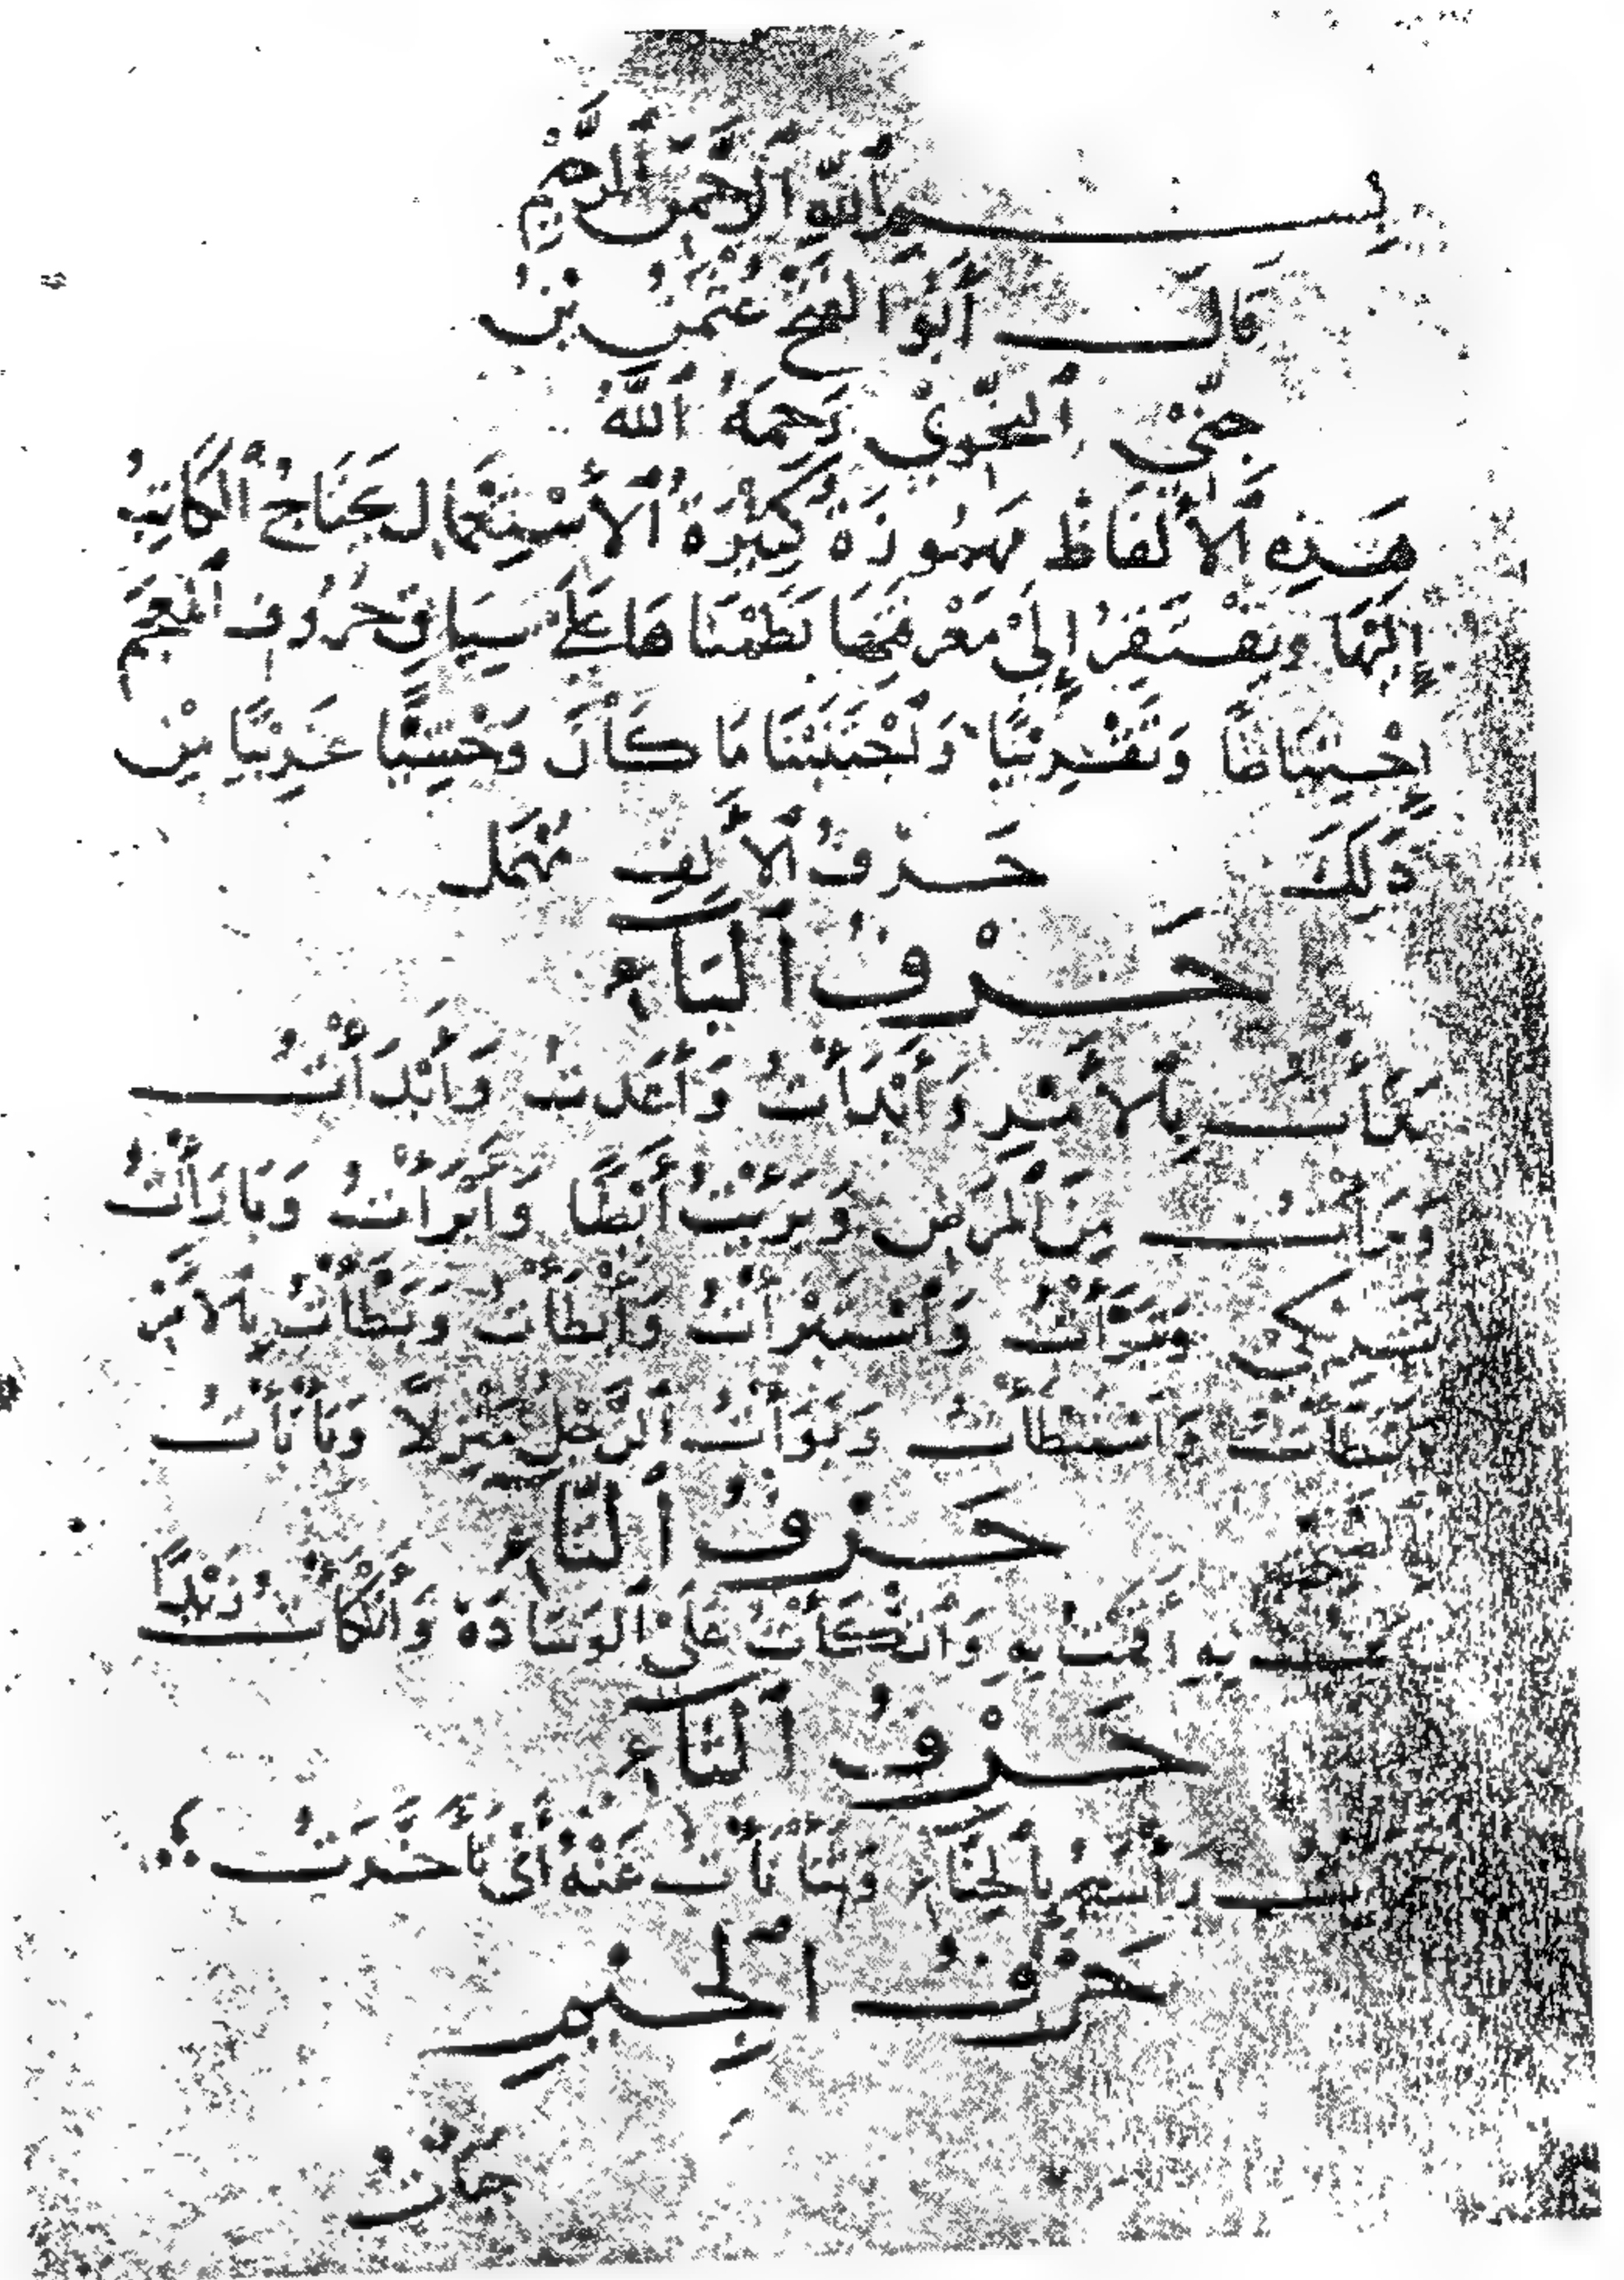 بِسْمِ اللَّهِ الرَّحْمَنِ الرَّحِيمِ
قَالَ أَبُو الْفَتْحِ عُثْمَنُ بْنُ
جِنِّي النَّحْوِيُّ رَحِمَهُ اللَّهُ
هَذِهِ أَلْفَاظٌ مَهْمُوزَةٌ كَثِيرَةُ الْاسْتِعْمَالِ يَحْتَاجُ الْكَاتِبُ
إِلَيْهَا وَيَفْتَقِرُ إِلَى مَعْرِفَتِهَا نَظَمْنَاهَا عَلَى سِيَاقِ حُرُوفِ الْمُعْجَمِ
احْتِيَاطًا وَتَقْرِيبًا وَتَجَنَّبْنَا مَا كَانَ وَحْشِيًّا غَرِيبًا مِنْ
ذَلِكَ حَرْفُ الْأَلِفِ مُهْمَلٌ
حَرْفُ الْبَاءِ
بَدَأْتُ بِالْأَمْرِ وَأَبْدَأْتُ وَأَعَدْتُ وَابْتَدَأْتُ
وَبَرَأْتُ مِنَ الْمَرَضِ وَبَرِئْتُ أَيْضًا وَأَبْرَأْتُ وَبَارَأْتُ
شَرِيكِي وَتَبَرَّأْتُ وَاسْتَبْرَأْتُ وَأَبْطَأْتُ وَبَطَّأْتُ بِالْأَمْرِ
وَاسْتَبْطَأْتُ وَبَوَّأْتُ الرَّجُلَ مَنْزِلًا وَبَأْبَأْتُ
حَرْفُ التَّاءِ
بِهِ أَقَمْتُ بِهِ وَاتَّكَأْتُ عَلَى الْوِسَادَةِ وَأَتْكَأْتُ زَيْدًا
حَرْفُ الثَّاءِ
بِالْحِنَّاءِ وَثَأْثَأْتُ عَنْهُ أَيْ تَأَخَّرْتُ
حَرْفُ الْجِيمِ